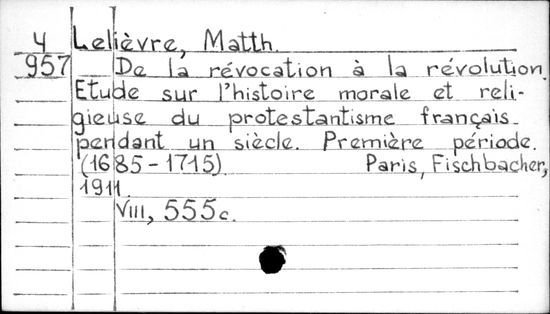 4 Lelièvre, Matth.
957 De la révocation à la révolution.
Etude sur l'histoire morale et reli-
gieuse du protestantisme français
pendant un siècle. Première période.
(1685-1715). Paris, Fischbacher,
1911.
VIII, 555c.